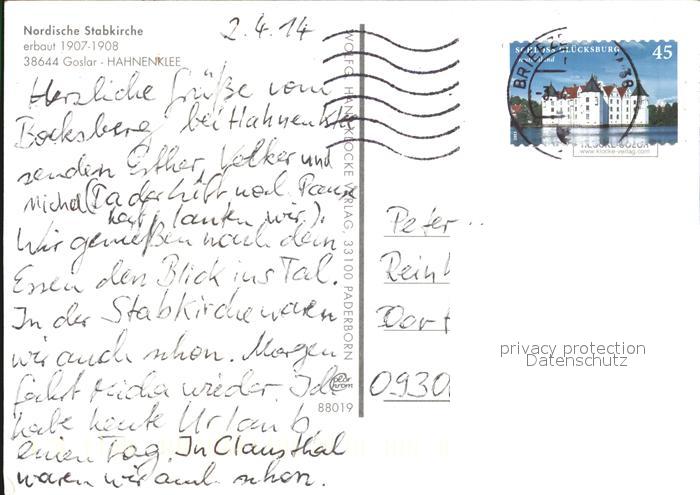 Nordische Stabkirche
erbaut 1907-1908
38644 Goslar - HAHNENKLEE
2.4.14
Herzliche Grüße vom
Bocksberg bei Hahnenklee
senden Esther, Volker und
Michel (Ta der Lift noch Pause
hat, lauten wir).
Wir genießen nach dem
Essen den Blick ins Tal.
In der Stabkirche waren
wir auch schon. Morgen
fährt Micha wieder. Ich
habe heute Urlaub
einen Tag. In Clausthal
waren wir auch schon.
88019
SCHLOSS GLÜCKSBURG
45
KLOCKE-COLOR
www.klocke-verlag.com
Peter
Reinh
Dort
0930
privacy protection
Datenschutz